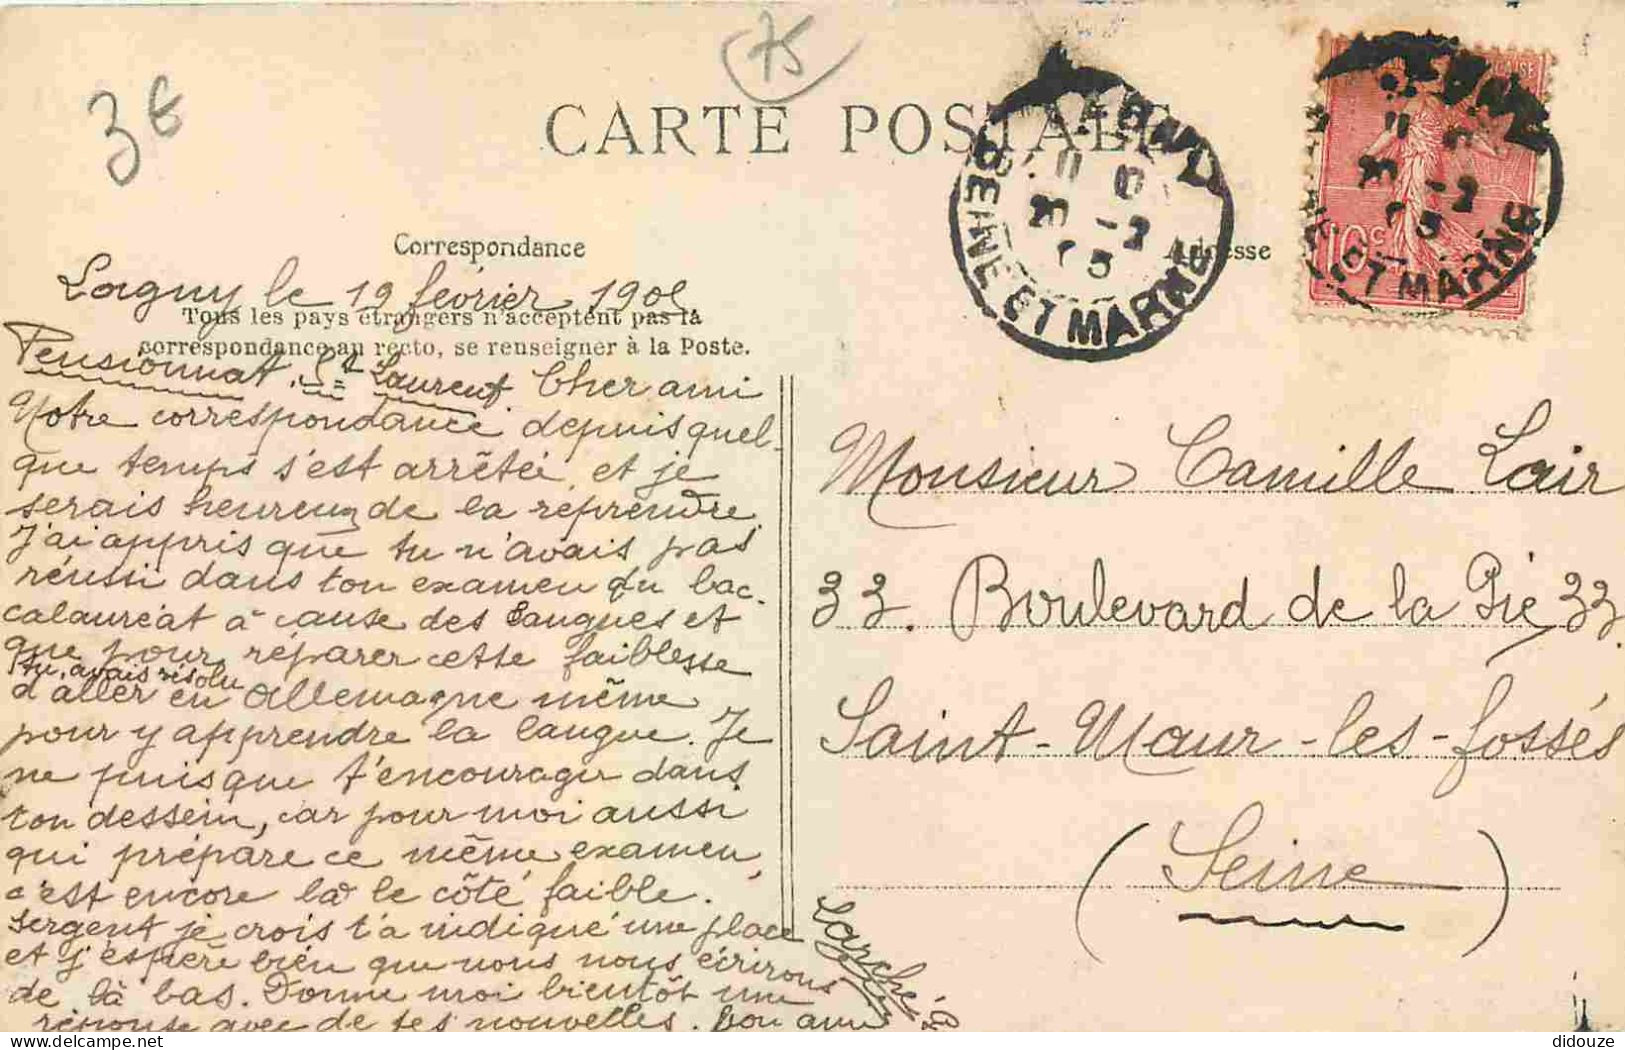 75
3€
CARTE POSTALE
LAGNY
SEINE ET MARNE
20 -2
05
10c
Correspondance
Adresse
Lagny le 19 février 1905
Tous les pays étrangers n'acceptent pas la
correspondance au recto, se renseigner à la Poste.
Pensionnat St Laurent. Cher ami
Notre correspondance depuis quel-
que temps s'est arrêtée et je
serais heureux de la reprendre.
J'ai appris que tu n'avais pas
réussi dans ton examen du bac-
calauréat à cause des langues et
que pour réparer cette faiblesse
tu avais résolu
d'aller en Allemagne même
pour y apprendre la langue. Je
ne puis que t'encourager dans
ton dessein, car pour moi aussi
qui prépare ce même examen,
c'est encore là le côté faible.
Sergent je crois t'a indiqué une place
et j'espère bien que nous nous écrirons
de là bas. Donne moi bientôt une
réponse avec de tes nouvelles. Ton ami
Monsieur Camille Lair
33. Boulevard de la Pie 33.
Saint-Maur-les-fossés
(Seine)
didouze